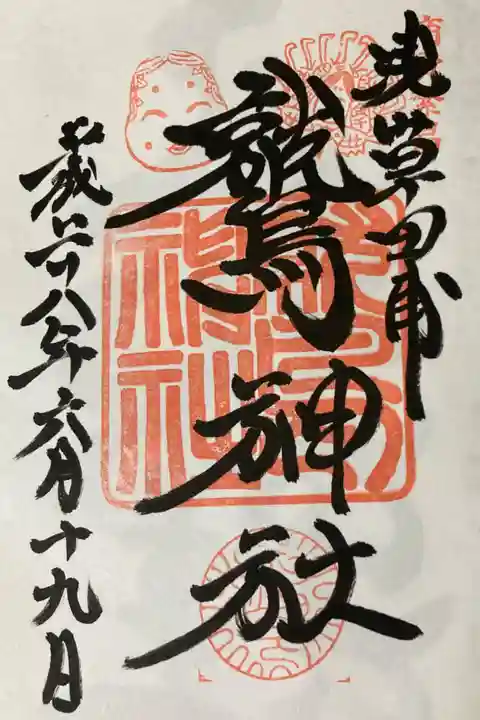 浅草田甫
鷲神社
平成二十八年六月十九日